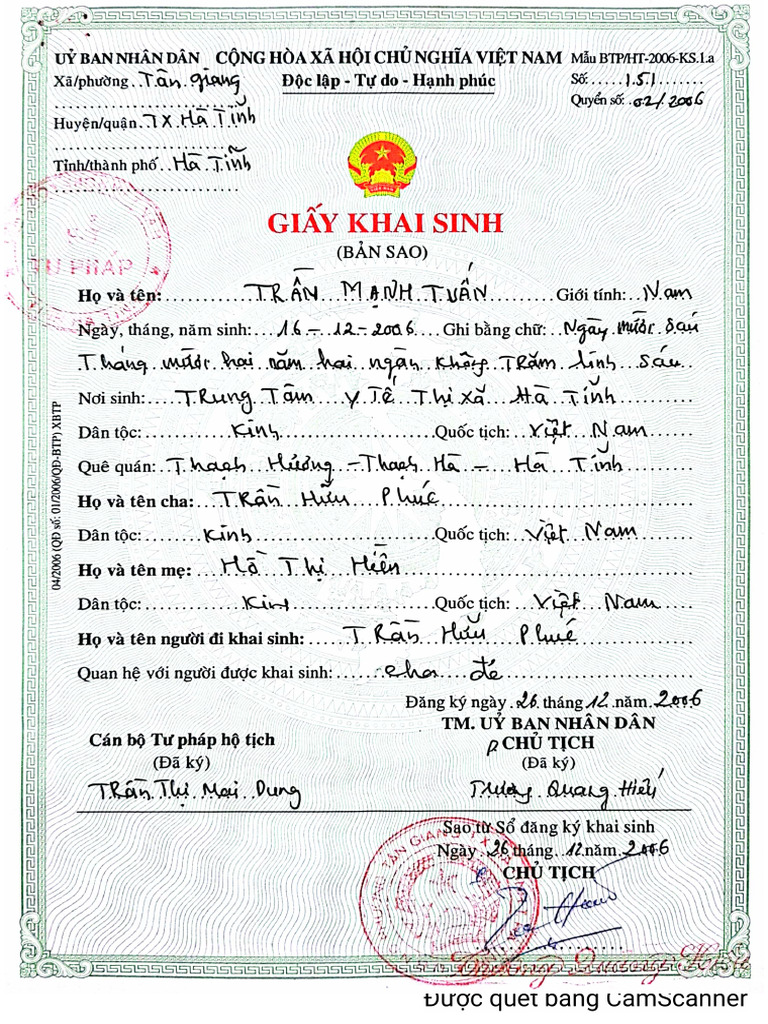 UỶ BAN NHÂN DÂN CỘNG HÒA XÃ HỘI CHỦ NGHĨA VIỆT NAM Mẫu BTP/HT-2006-KS.1.a
Xã/phường..Tân giang Độc lập - Tự do - Hạnh phúc Số:.....151
Quyển số:.02/2006
Huyện/quận..TX Hà Tĩnh
Tỉnh/thành phố..Hà Tĩnh
TƯ PHÁP
GIẤY KHAI SINH
(BẢN SAO)
Họ và tên: TRẦN MẠNH TUẤN Giới tính: Nam
Ngày, tháng, năm sinh: 16 - 12 - 2006 Ghi bằng chữ: Ngày mười sáu
Tháng mười hai năm hai ngàn không trăm linh sáu
Nơi sinh: Trung Tâm y Tế Thị xã Hà Tĩnh
Dân tộc: Kinh Quốc tịch: Việt Nam
Quê quán: Thạch Hương - Thạch Hà - Hà Tĩnh
Họ và tên cha: Trần Hữu Phúc
Dân tộc: Kinh Quốc tịch: Việt Nam
Họ và tên mẹ: Hồ Thị Hiền
Dân tộc: Kinh Quốc tịch: Việt Nam
Họ và tên người đi khai sinh: Trần Hữu Phúc
Quan hệ với người được khai sinh: cha đẻ
Đăng ký ngày 26 tháng 12 năm 2006
TM. UỶ BAN NHÂN DÂN
Cán bộ Tư pháp hộ tịch P. CHỦ TỊCH
(Đã ký) (Đã ký)
Trần Thị Mai Dung Trương Quang Hiếu
Sao từ Sổ đăng ký khai sinh
Ngày 26 tháng 12 năm 2006
CHỦ TỊCH
TÂN GIANG T.X
Trương Quang Hiếu
04/2006 (QĐ số: 01/2006/QĐ-BTP) XBTP
Được quét bằng CamScanner